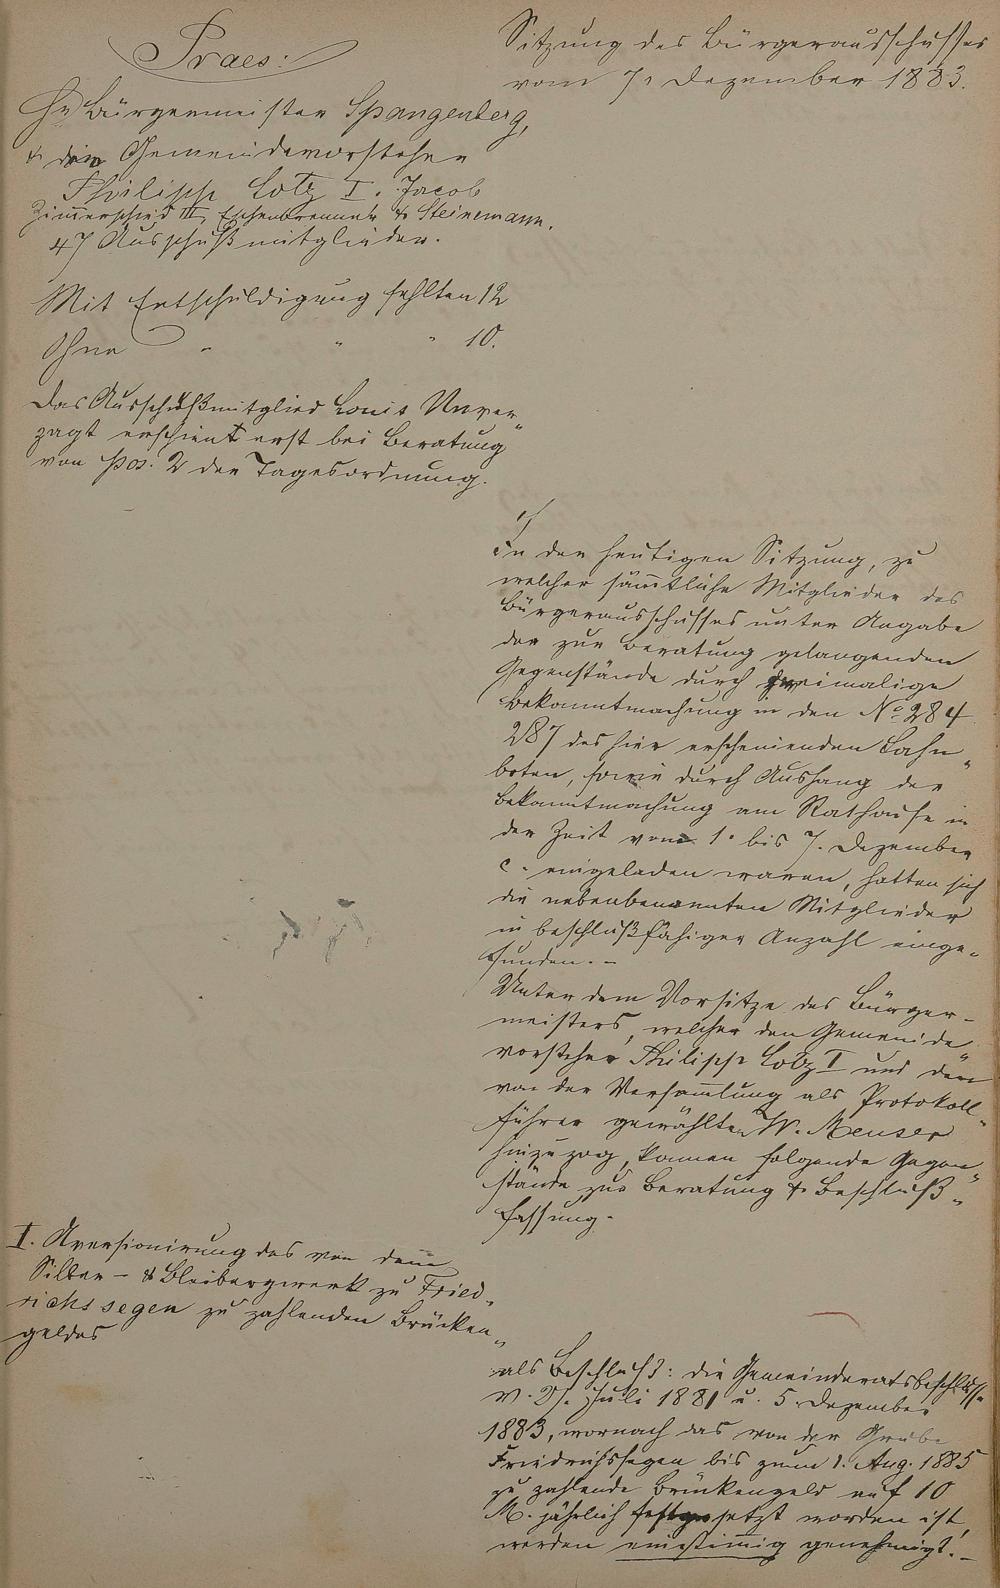 Praes:
Hr Bürgermeister Spangenberg,
& die Gemeindevorsteher
Philipp Lotz I. Jacob
Zimmerschied III, Eschenbrenner & Steinemann.
47 Ausschußmitglieder.
Mit Entschuldigung fehlten 12
Ohne " " " 10.
Das Ausschußmitglied Louis Unver-
zagt erschien erst bei Beratung
von Pos. 2 der Tagesordnung.
I. Aversionirung des von dem
Silber- & Bleibergwerk zu Fried-
richssegen zu zahlenden Brücken-
geldes
Sitzung des Bürgerausschusses
vom 7. Dezember 1883.
In der heutigen Sitzung, zu
welcher sämtliche Mitglieder des
Bürgerausschusses unter Angabe
der zur Beratung gelangenden
Gegenstände durch zweimalige
Bekanntmachung in den No 284
287 des hier erscheinenden Lahn-
boten, sowie durch Aushang der
Bekanntmachung am Rathause in
der Zeit vom 1. bis 7. Dezember
c. eingeladen waren, hatten sich
die nebenbenannten Mitglieder
in beschlußfähiger Anzahl einge-
funden. -
Unter dem Vorsitze des Bürger-
meisters, welcher den Gemeinde-
vorsteher Philipp Lotz I und den
von der Versamlung als Protokoll-
führer gewählten W. Menser
hinzuzog, kamen folgende Gegen-
stände zur Beratung & Beschluß-
fassung.
als Beschluß: die Gemeinderatsbeschlüsse
v. 21. Juli 1881 u. 5. Dezember
1883, wornach das von der Grube
Friedrichssegen bis zum 1. Aug. 1885
zu zahlende Brückengeld auf 10
M. jährlich festgesetzt worden ist,
werden einstimig genehmigt. -